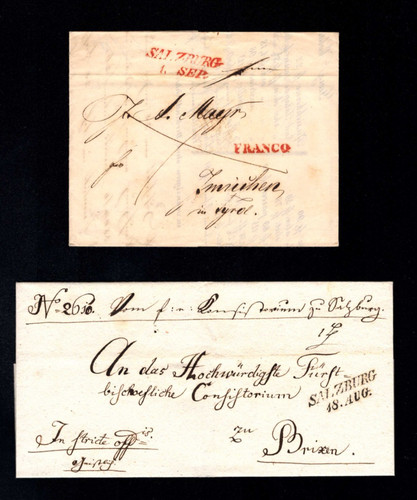 SALZBURG
1. SEP.
A. Mayr
FRANCO
Innichen
in Tyrol.
No. 2610. Vom f: e: Consistorium zu Salzburg.
An das Hochwürdigste Fürst-
bischöfliche Consistorium
SALZBURG
18. AUG.
In strict: off:
zu
Brixen.